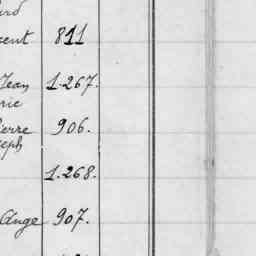 cent 811
Jean 1.267.
rie
ierre 906.
seph
1.268.
Ange 907.